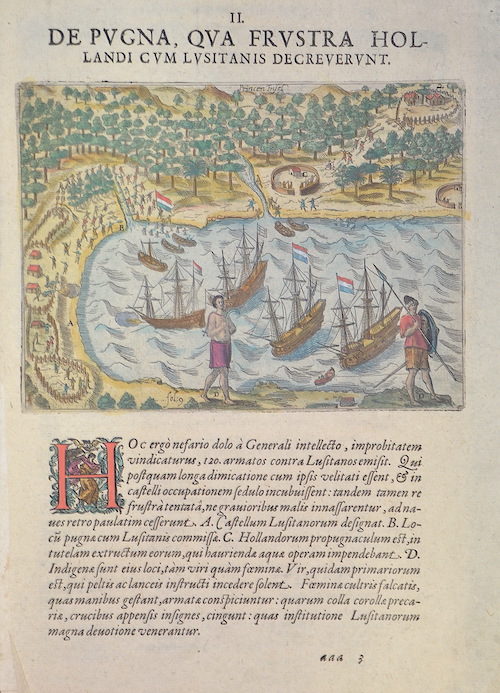 II.
DE PVGNA, QVA FRVSTRA HOL-
LANDI CVM LVSITANIS DECREVERVNT.
Princen Insel
2.
B
C
A
D
D
HOc ergò nefario dolo à Generali intellecto, improbitatem
vindicaturus, 120. armatos contra Lusitanos emisit. Qui
postquam longa dimicatione cum ipsis velitati essent, & in
castelli occupationem sedulo incubuissent: tandem tamen re
frustrà tentatâ, ne grauioribus malis innassarentur, ad na-
ues retro paulatim cesserunt. A. Castellum Lusitanorum designat. B. Lo-
cũ pugnæ cum Lusitanis commissæ. C. Hollandorum propugnaculum est, in
tutelam extructum eorum, qui hauriendæ aquæ operam impendebant. D.
Indigenæ sunt eius loci, tàm viri quàm fœminæ. Vir, quidam primariorum
est, qui peltis ac lanceis instructi incedere solent. Fœminæ cultris falcatis,
quas manibus gestant, armatæ conspiciuntur: quarum colla corollæ preca-
riæ, crucibus appensis insignes, cingunt: quas institutione Lusitanorum
magna deuotione venerantur.
aaa 3